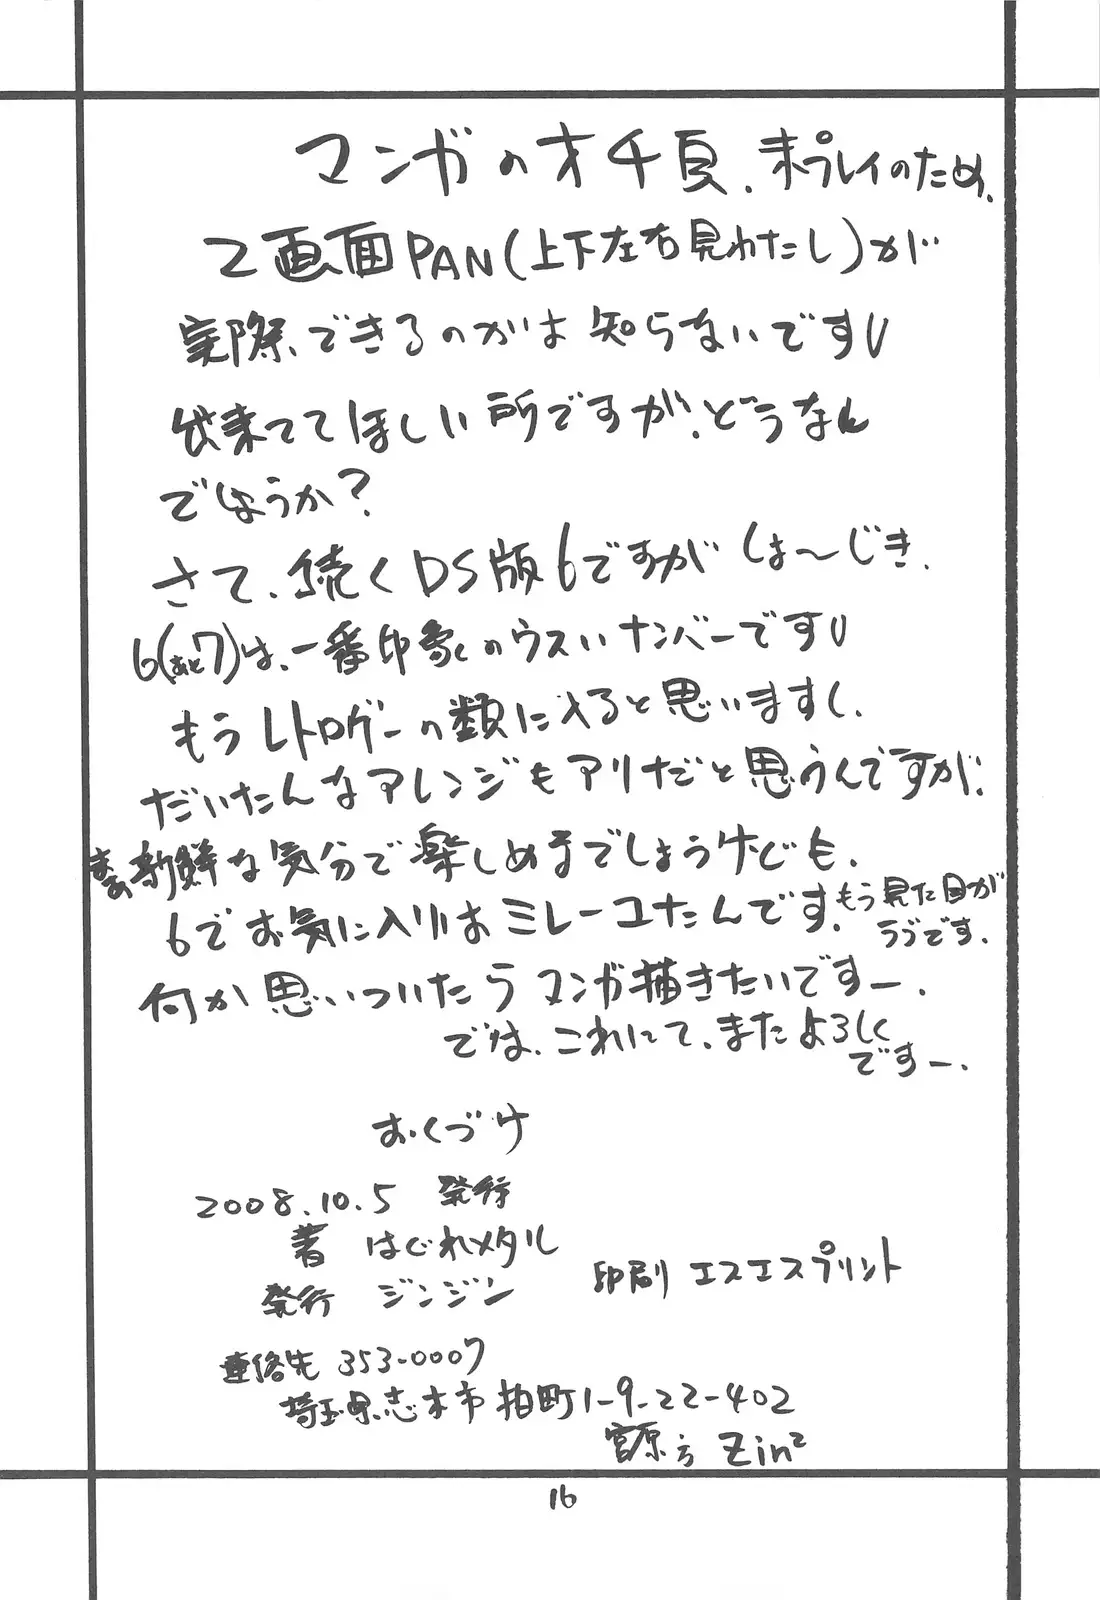 マンガのオチ頁、未プレイのため、
2画面PAN(上下左右見わたし)が
実際、できるのかは知らないですU
出来ててほしい所ですが、どうなん
でしょうか?
さて、続くDS版6ですがしょ〜じき、
6(あと7)は、一番印象のウスいナンバーですU
もうレトロゲーの類に入ると思いますし、
だいたんなアレンジもアリだと思うんですが、
まぁ新鮮な気分で楽しめるでしょうけども、
6でお気に入りはミレーユたんです。もう見た目が
ラブです。
何か思いついたらマンガ描きたいですー、
では、これにて、またよろしく
ですー、
おくづけ
2008.10.5 発行
著 はぐれメタル
発行 ジンジン
印刷 エスエスプリント
連絡先 353-0007
埼玉県志木市柏町1-9-22-402
宮原方 Zin²
16